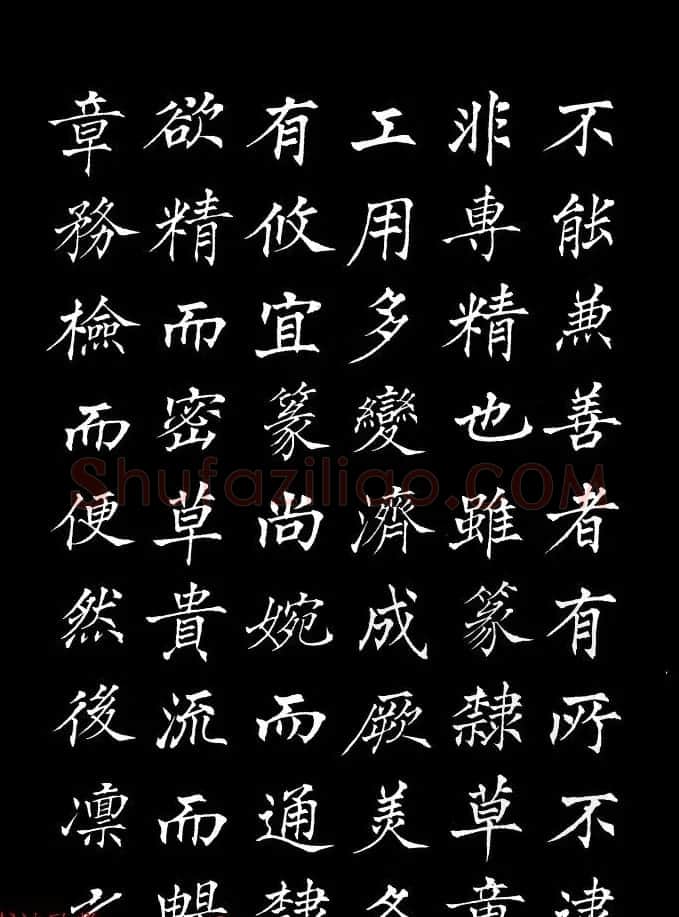 不能兼善者有所不
非專精也雖篆隸草章
工用多變濟成厥美各
有攸宜篆尚婉而通隸
欲精而密草貴流而暢
章務檢而便然後凛之
Shufaziliao.COM